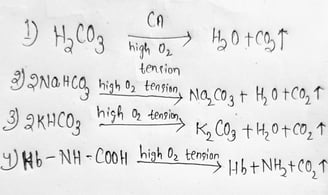 1) H₂CO₃ CA high O₂ tension → H₂O + CO₂↑
2) 2NaHCO₃ high O₂ tension → Na₂CO₃ + H₂O + CO₂↑
3) 2KHCO₃ high O₂ tension → K₂CO₃ + H₂O + CO₂↑
4) Hb - NH - COOH high O₂ tension → Hb + NH₂ + CO₂↑